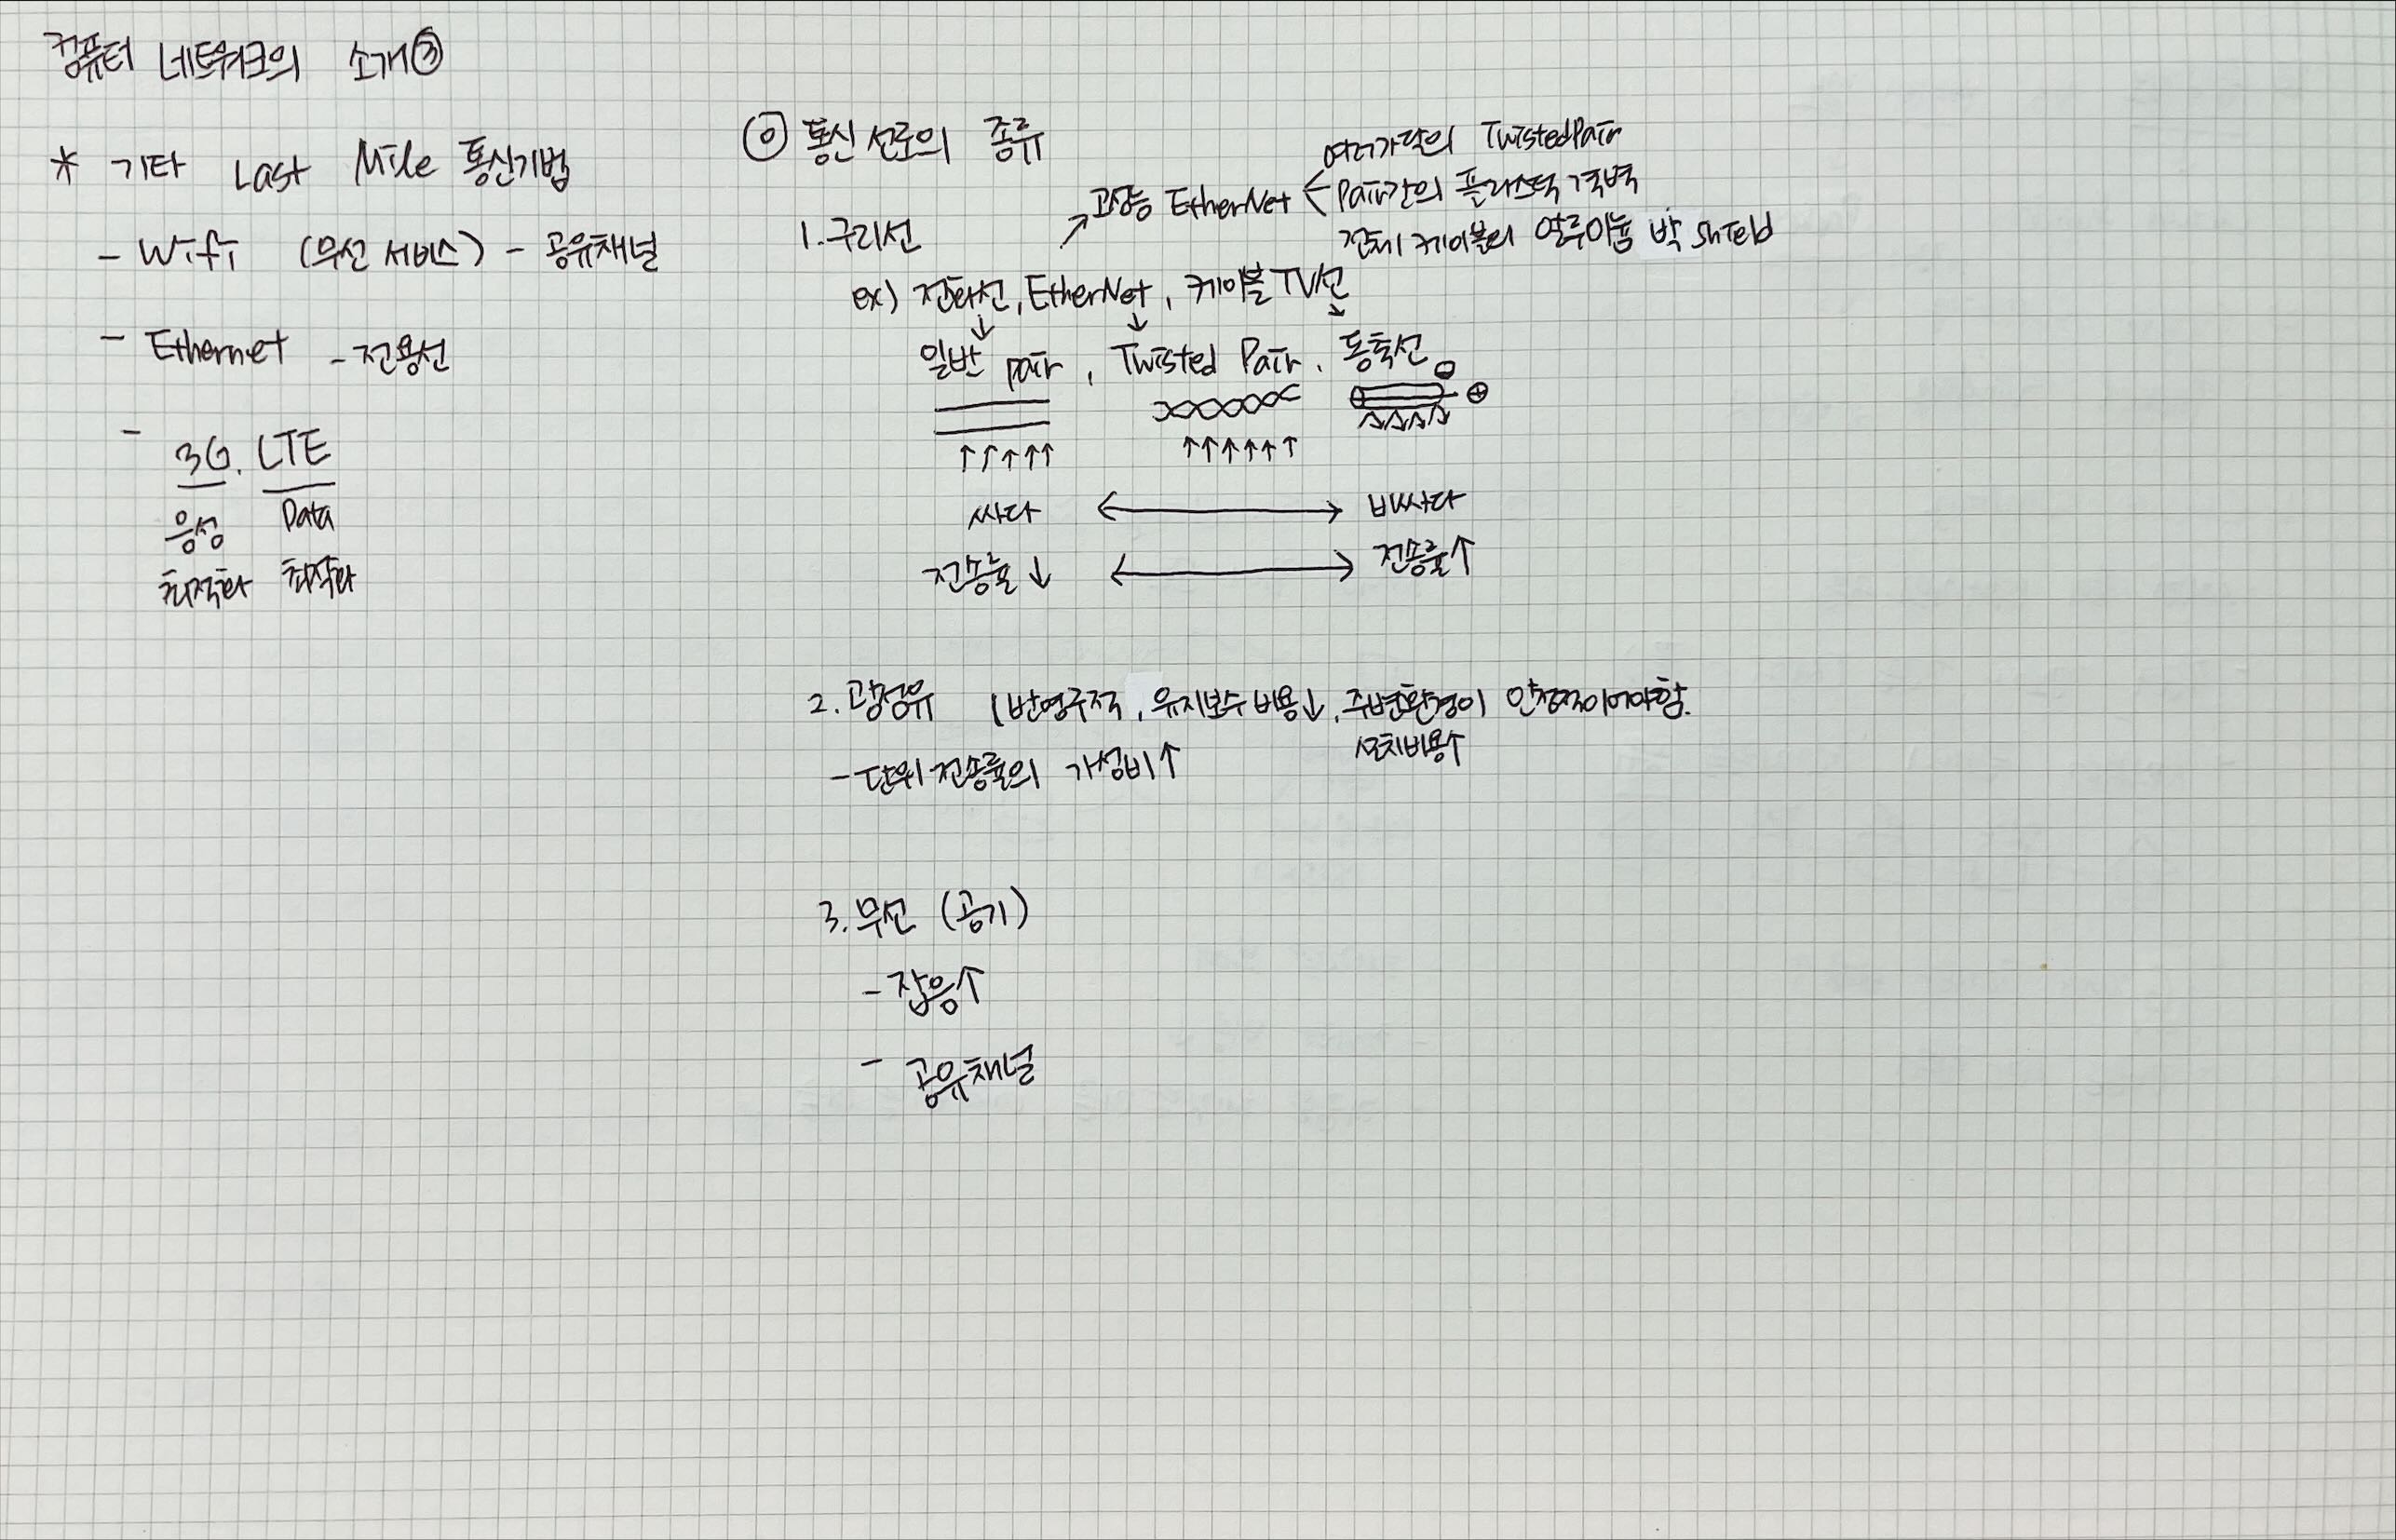 컴퓨터 네트워크의 소개③
* 기타 Last Mile 통신기법
- Wifi (무선 서비스) - 공유채널
- Ethernet - 전용선
- 3G. LTE
음성 Data
최적화 최적화
⓪ 통신 선로의 종류
1. 구리선
↗ 고성능 EtherNet <
여러가닥의 TwistedPair
Pair간의 플라스틱 격벽
전체 케이블의 알루미늄 박 shield
ex) 전화선, EtherNet, 케이블TV선
↓ ↓ ↓
일반 pair, Twisted Pair, 동축선
⊖
⊕
↑↑↑↑↑ ↑↑↑↑↑↑
싸다 ↔ 비싸다
전송률↓ ↔ 전송률↑
2. 광섬유 (반영구적, 유지보수 비용↓, 주변환경이 안정적이어야함.
설치비용↑
- 단위 전송률의 가성비↑
3. 무선 (공기)
- 잡음↑
- 공유채널